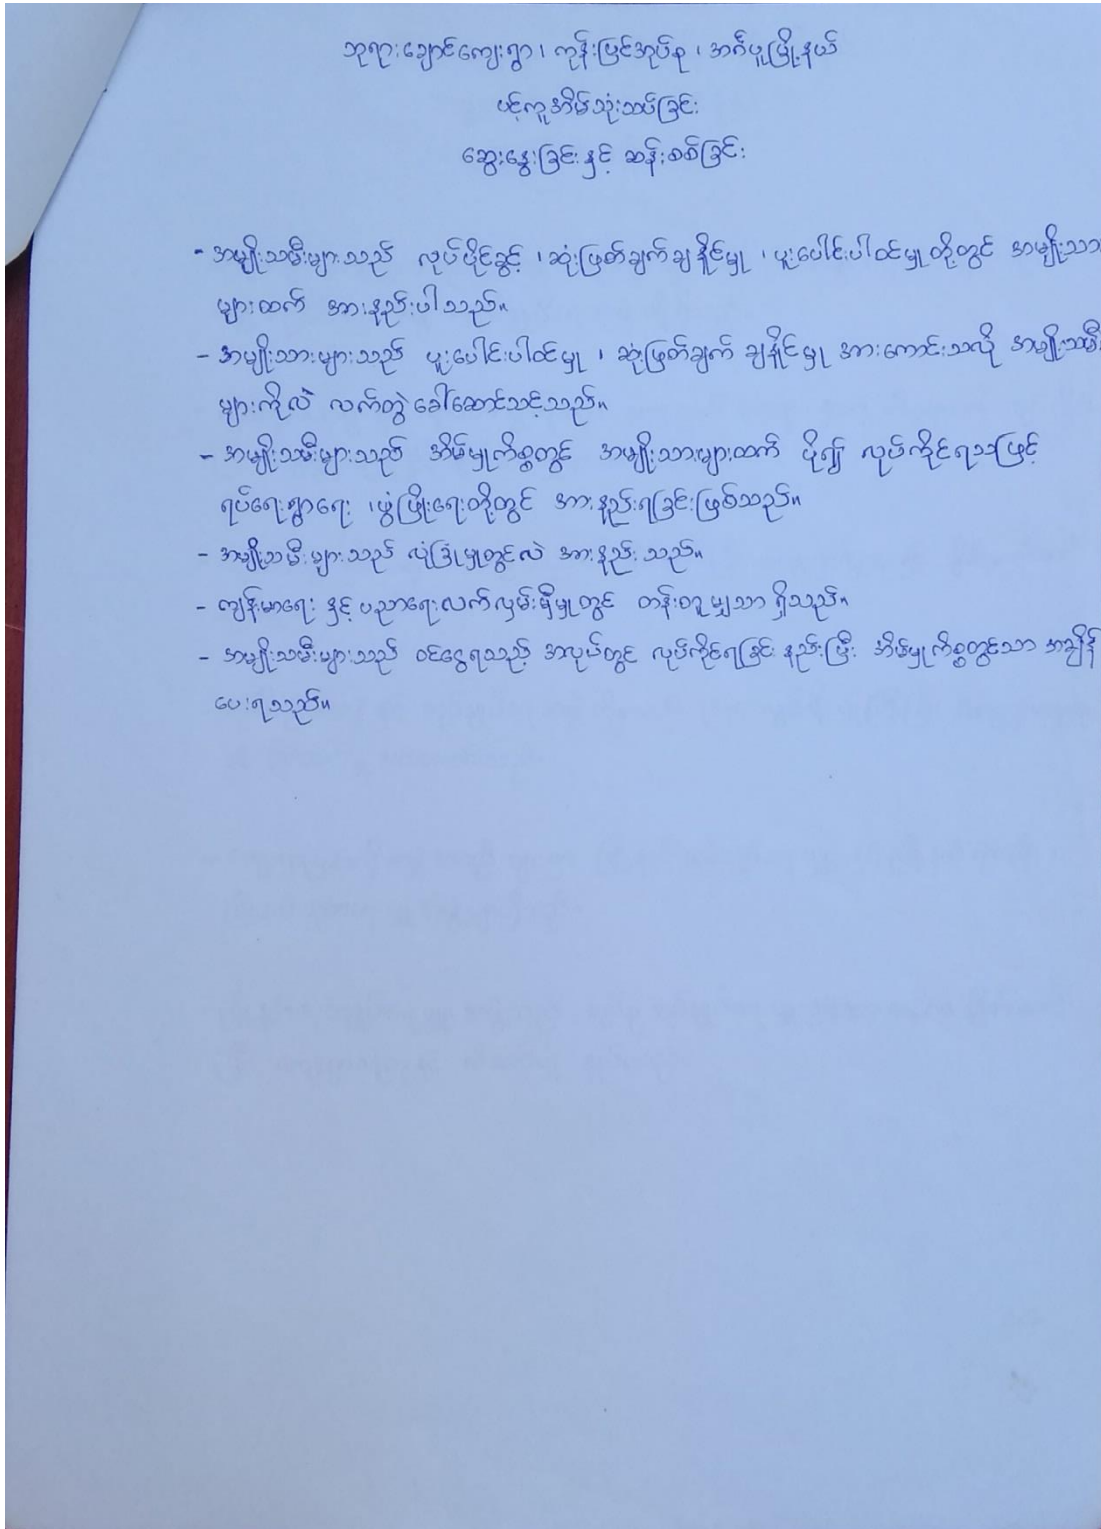 ဘုရားချောင်ကျေးရွာ ၊ ကုန်းမြင်အုပ်စု ၊ အင်္ဂပူမြို့နယ်
ပင့်ကူအိမ်သုံးသပ်ခြင်း
ဆွေးနွေးခြင်းနှင့် ဆန်းစစ်ခြင်း
- အမျိုးသမီးများသည် လုပ်ပိုင်ခွင့် ၊ဆုံးဖြတ်ချက်ချနိူင်မှု ၊ ပူးပေါင်းပါဝင်မှုတို့တွင် အမျိုးသား
များထက် အားနည်းပါသည်။
- အမျိုးသားများသည် ပူးပေါင်းပါဝင်မှု ၊ ဆုံးဖြတ်ချက် ချနိူင်မှု အားကောင်းသလို အမျိုးသမီး
များကိုလဲ လက်တွဲခေါ်ဆောင်သင့်သည်။
- အမျိုးသမီးများသည် အိမ်မှုကိစ္စတွင် အမျိုးသားများထက် ပို၍ လုပ်ကိုင်ရသဖြင့်
ရပ်ရေးရွာရေး ၊ဖွံ့ဖြိုးရေးတို့တွင် အားနည်းရခြင်းဖြစ်သည်။
- အမျိုးသမီးများသည် လုံခြုံမှုတွင်လဲ အားနည်းသည်။
- ကျန်းမာရေး နှင့် ပညာရေးလက်လှမ်းမှီမှုတွင် တန်းတူမျှသာ ရှိသည်။
- အမျိုးသမီးများသည် ဝင်ငွေရသည့် အလုပ်တွင် လုပ်ကိုင်ရခြင်း နည်းပြီး အိမ်မှုကိစ္စတွင်သာ အချိန်
ပေးရသည်။